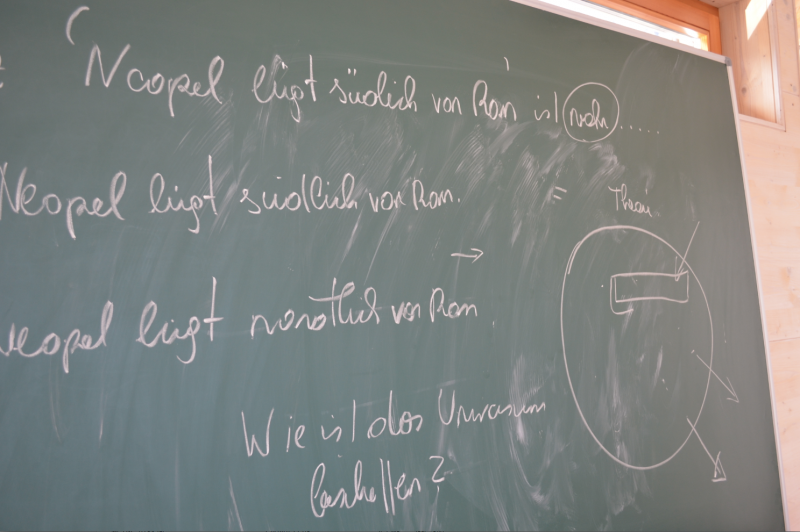 'Neapel liegt südlich von Rom' ist wahr.....
Neapel liegt südlich von Rom. =
Theorie
→
Neapel liegt nördlich von Rom.
Wie ist das Universum
beschaffen?